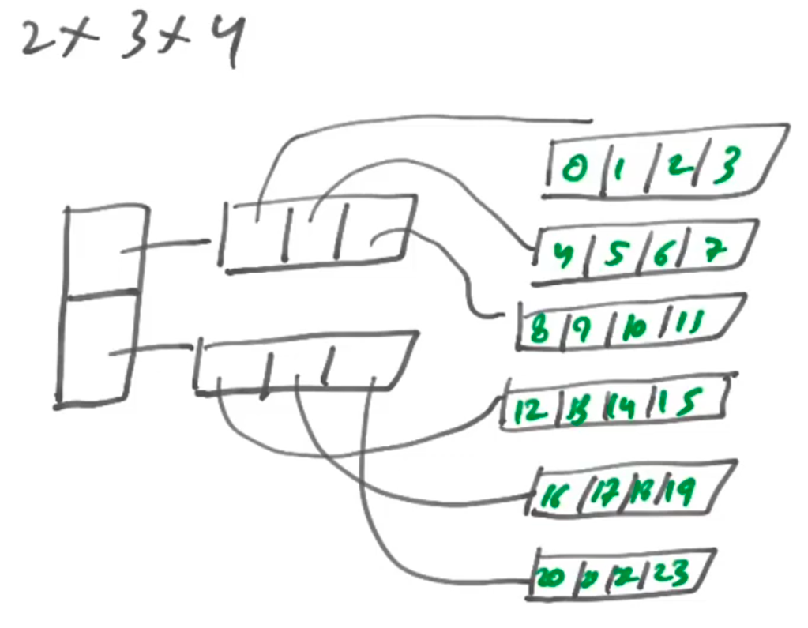 2 x 3 x 4
0 1 2 3
4 5 6 7
8 9 10 11
12 13 14 15
16 17 18 19
20 22 23